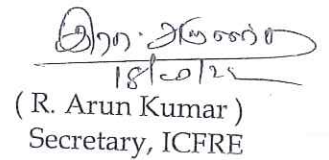 இரா. அருண்
( R. Arun Kumar )
Secretary, ICFRE